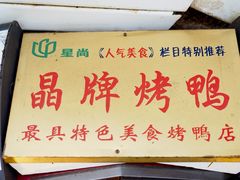 星尚《人气美食》栏目特别推荐
晶牌烤鸭
最具特色美食烤鸭店